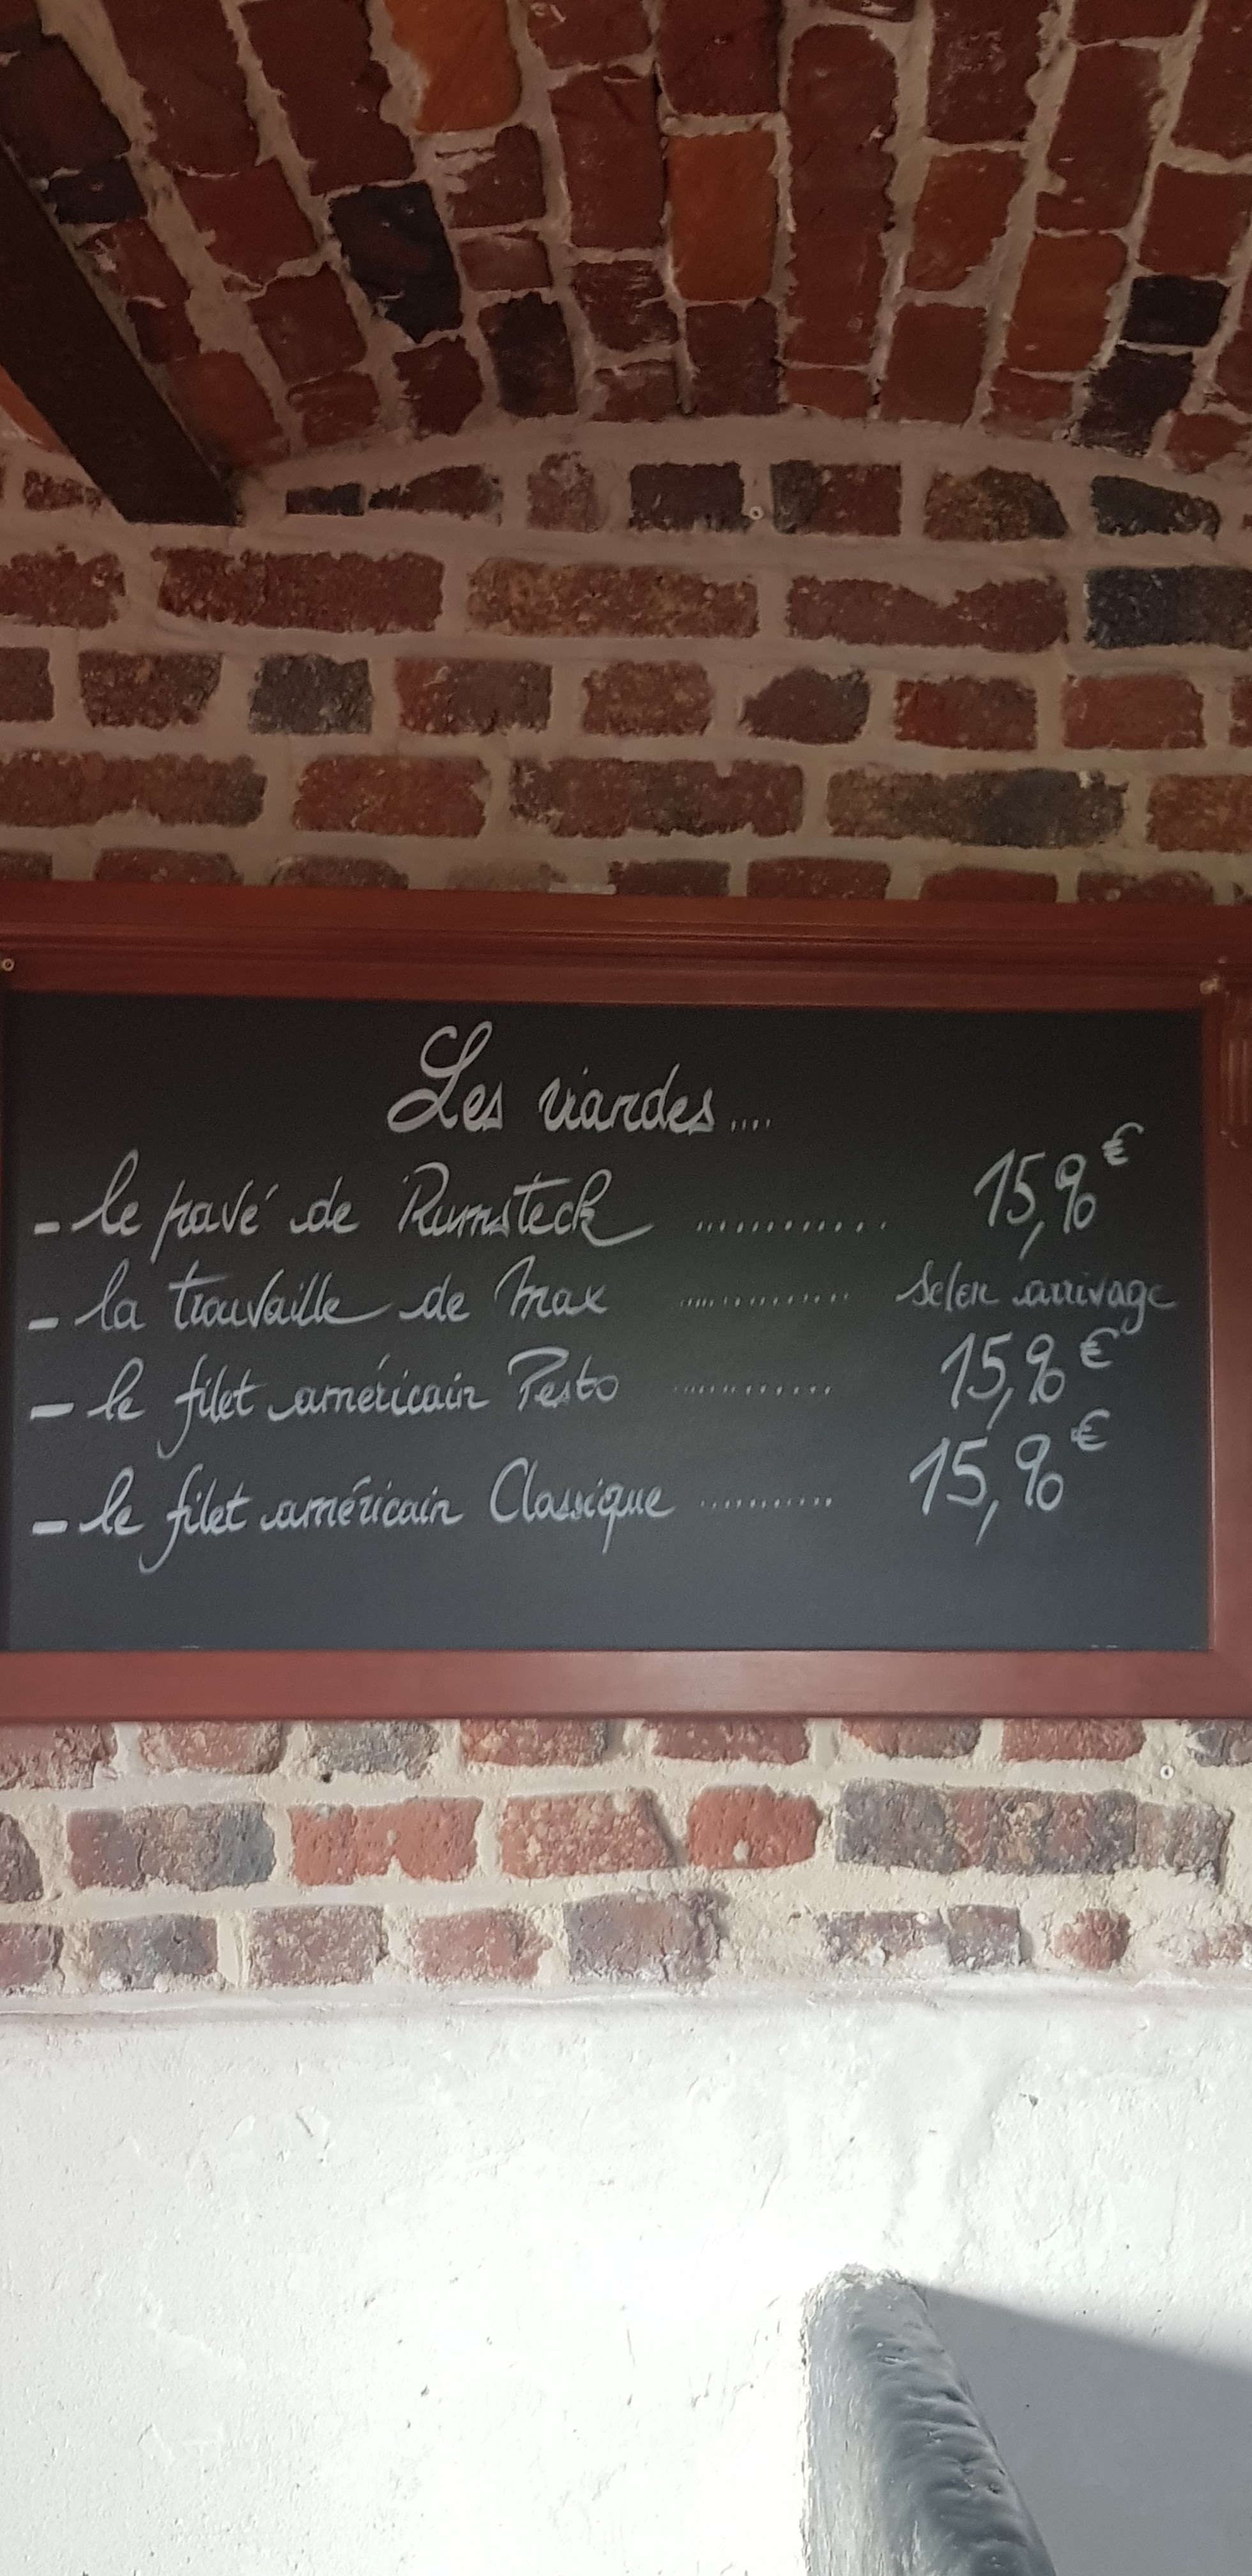 Les viandes....
- le pavé de Rumsteck ............ 15,90€
- la trouvaille de Max ............ selon arrivage
- le filet américain Pesto ............ 15,90€
- le filet américain Classique ............ 15,90€